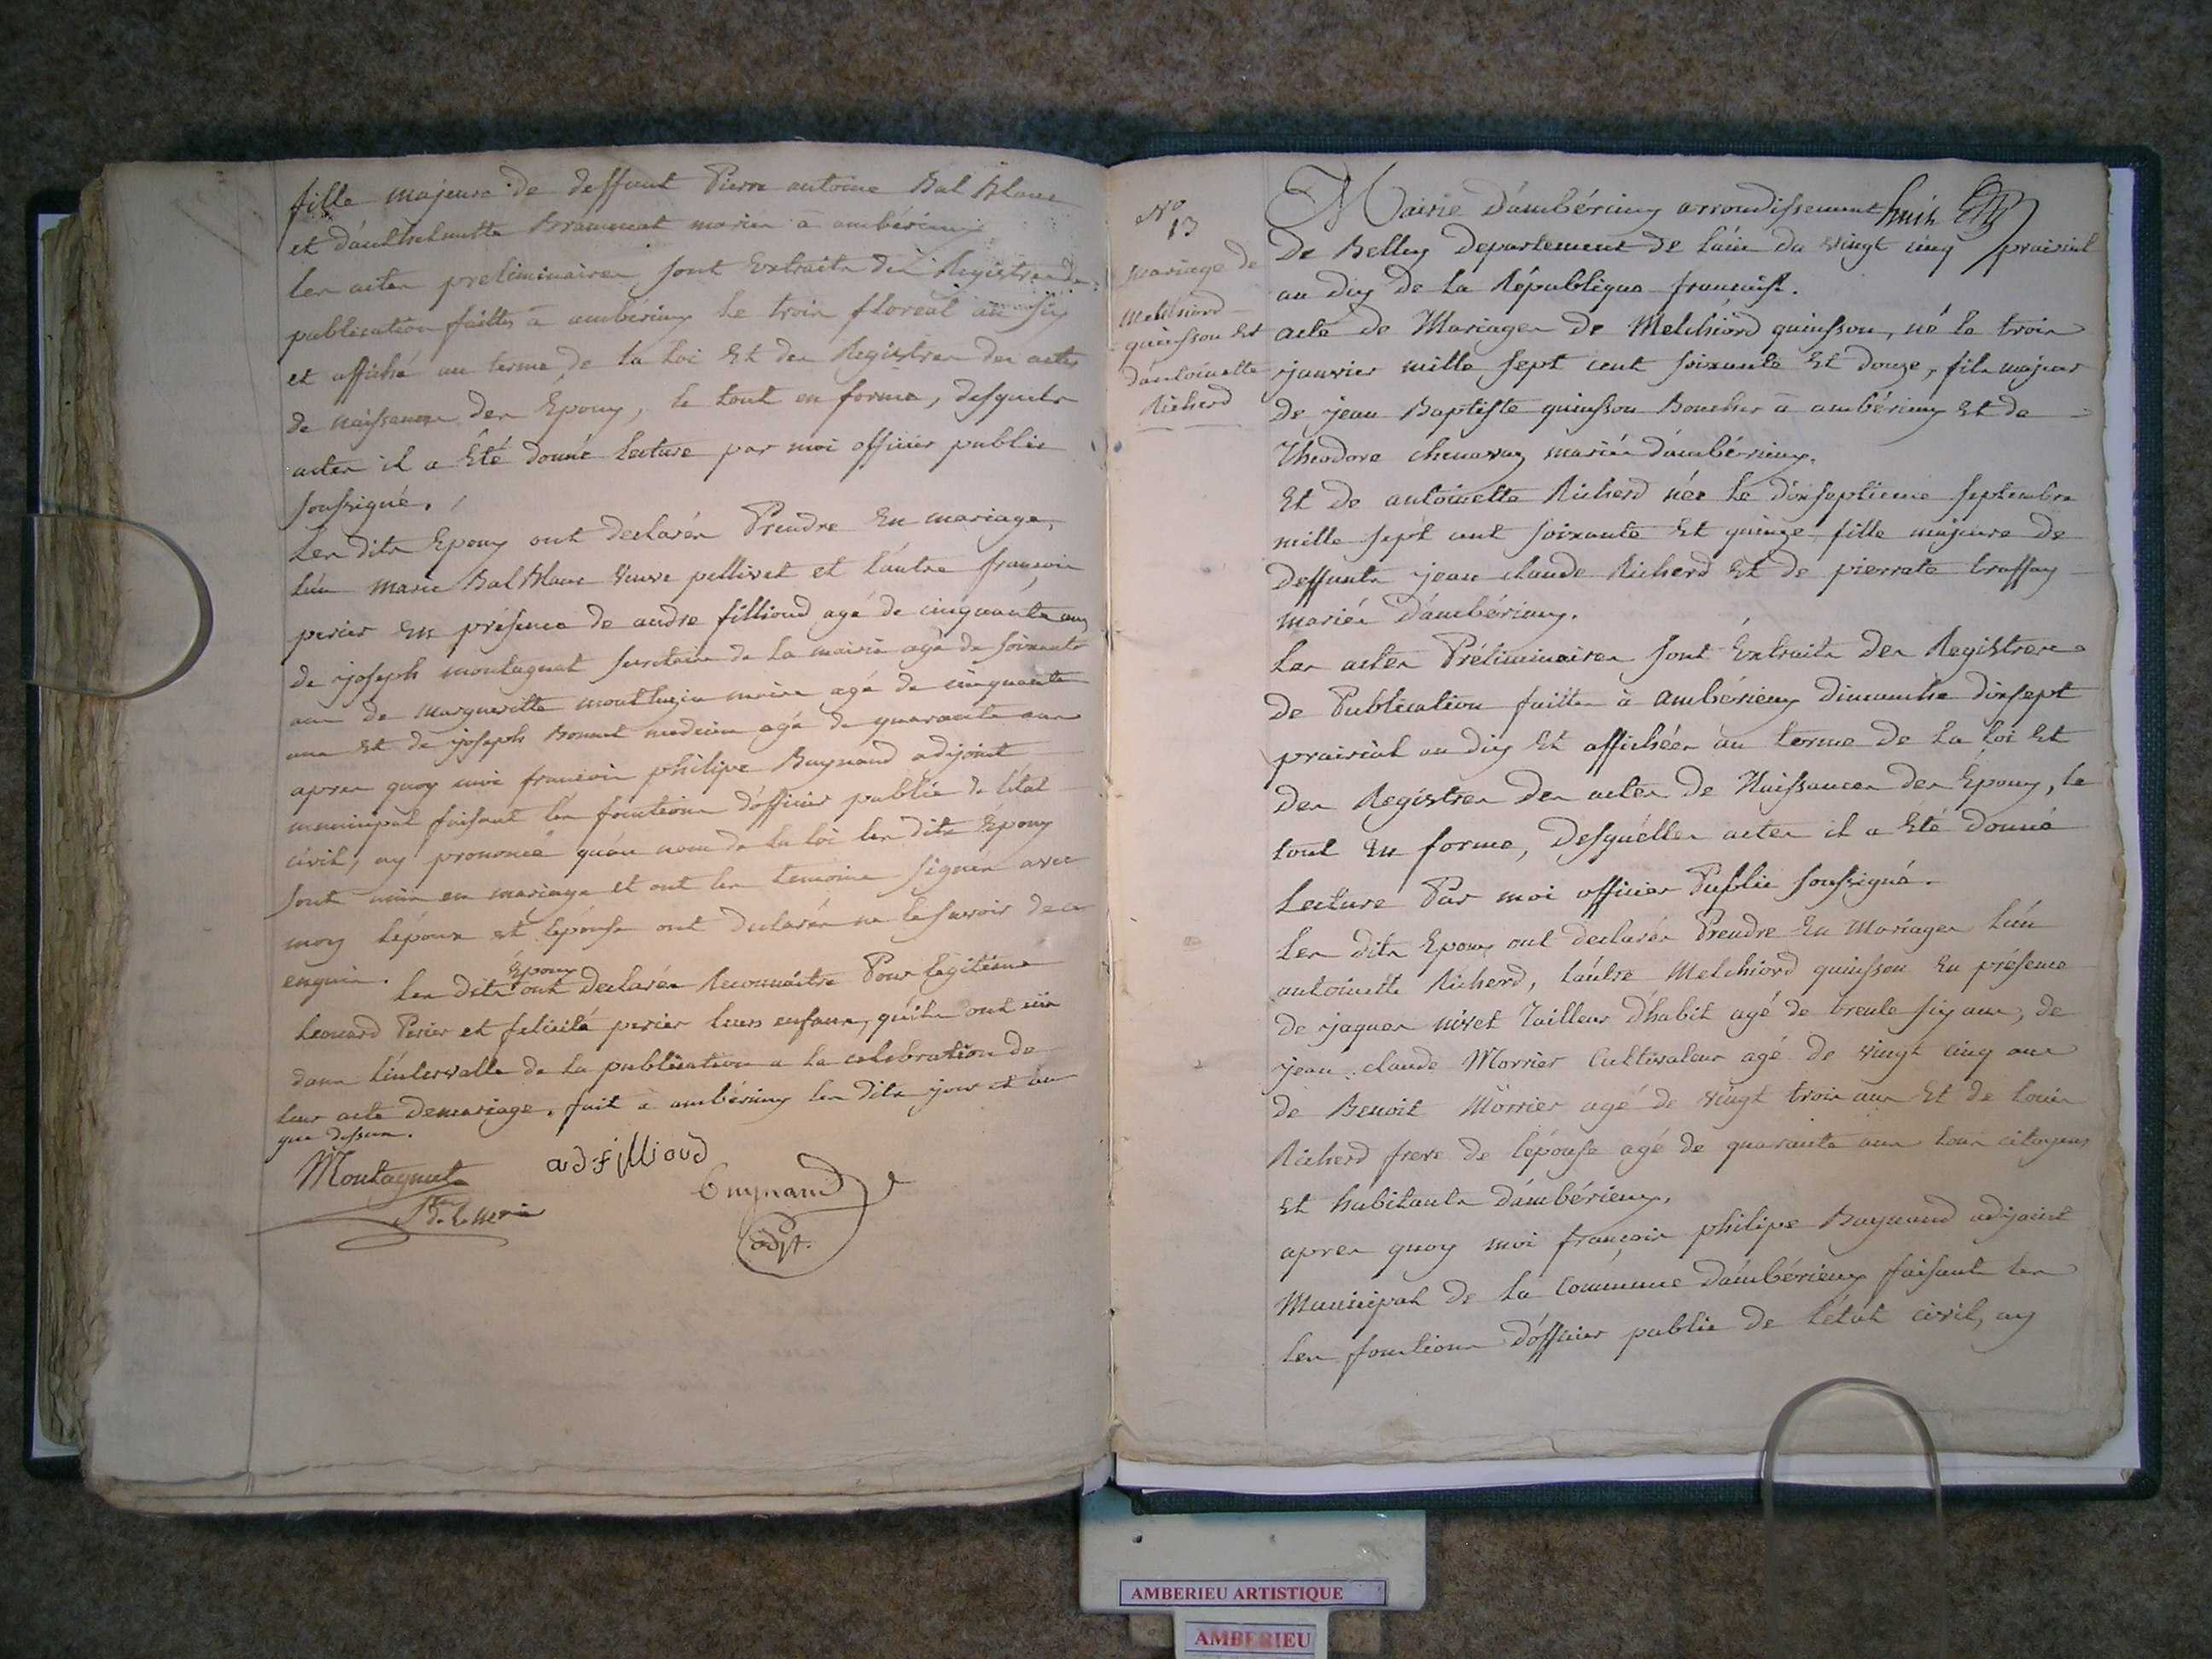 fille majeure de deffunt Pierre antoine Bal Blanc
et d'anthelmette Bramenat mariés à ambérieuy
les actes preliminaires sont Extraits des Registres de
publication faittes à ambérieuy le trois floreal an
et affiché au terme de la loi Et des Registres des actes
de naissance des Epouy, le tout en forme, desquels
actes il a Eté donné lecture par moi officier public
soussigné.
Les dits Epouy ont declarés Prendre En mariage,
l'un Marie Bal Blanc Veuve pellivet et l'autre françois
perier En présence de andre fillioud agé de cinquante ans
de joseph montagnat secrétaire de la mairie agé de soixante
ans de margueritte agé de cinquante
ans Et de joseph Bonnet medecin agé de quarante ans
apres quoy moi françois philipe Buynand adjoint
municipal faisant les fonctions d'officier public de l'état
civil, ay prononcé qu'au nom de la loi les dits Epouy
sont unis en mariage et ont les temoins signés avec
moy l'époux et l'épouse ont declarés ne le savoir de ce
enquis.
Epouy
les dits ont declarés Reconnaître Pour légitime
Leonard Perier et felicité perier leurs enfans, qu'ils ont eüs
dans l'intervalle de la publication a la celebration de
leur acte de mariage. fait à ambérieuy les dits jour et an
que dessus.
Montagnat
ad fillioud
Buynand
adjt.
No
13
Mariage de
Melchiord
quinsson Et
d'antoinette
Richerd
Mairie d'ambérieuy arrondissement
de Belley Departement de l'ain du vingt cinq prairial
an diy de la République française.
acte de Mariages de Melchiord quinsson, né le trois
janvier mille sept cent soixante Et douze, fils majeur
de jean Baptiste quinsson Boucher à ambérieuy Et de
Theodore chenavay mariés d'ambérieuy.
Et de antoinette Richerd née le dixseptieme septembre
mille sept cent soixante Et quinze fille majeure de
deffunts jean claude Richerd Et de pierrete traffay
mariés d'ambérieuy.
Les actes Préliminaires sont Extraits des Registres
de Publication faittes à ambérieuy dimanche dixsept
prairial an diy Et affichées au terme de la loi Et
des Registres des actes de Naissances des Epouy, le
tout En forme, desquelles actes il a Eté donné
Lecture Par moi officier Public soussigné.
Les dits Epouy ont declarés Prendre En Mariages l'un
antoinette Richerd, l'autre Melchiord quinsson En présence
de jaques nivet Tailleur d'habit agé de trente siy ans, de
jean claude Morrier Cultivateur agé de vingt cinq ans
de Benoit Morrier agé de vingt trois ans Et de louis
Richerd frere de l'épouse agé de quarante ans tous citoyens
Et habitants d'ambérieuy.
apres quoy moi françois philipe Buynand adjoint
Municipal de la commune d'ambérieuy faisant les
les fonctions d'officier public de l'état civil, ay
AMBERIEU ARTISTIQUE
AMBERIEU